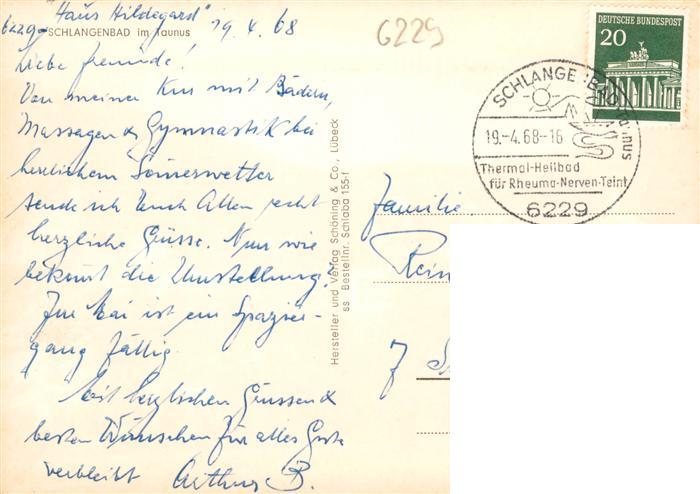 "Haus Hildegard" 19.4.68
6229 SCHLANGENBAD im Taunus
6229
Liebe Freunde!
Von meiner Kur mit Bädern,
Massagen & Gymnastik bei
herrlichem Sonnenwetter
sende ich Euch Allen recht
herzliche Grüsse. Nur wie
bekommt die Umstellung?
Im Mai ist ein Spazier-
gang fällig.
Mit herzlichen Grüssen &
besten Wünschen für alles Gute
verbleibt Arthur B.
Hersteller und Verlag Schöning & Co., Lübeck
ss Bestellnr. Schlaba 155-f
DEUTSCHE BUNDESPOST
20
SCHLANGENBAD Taunus
19.-4.68-16
Thermal-Heilbad
für Rheuma-Nerven-Teint
6229
Familie
Rein
7